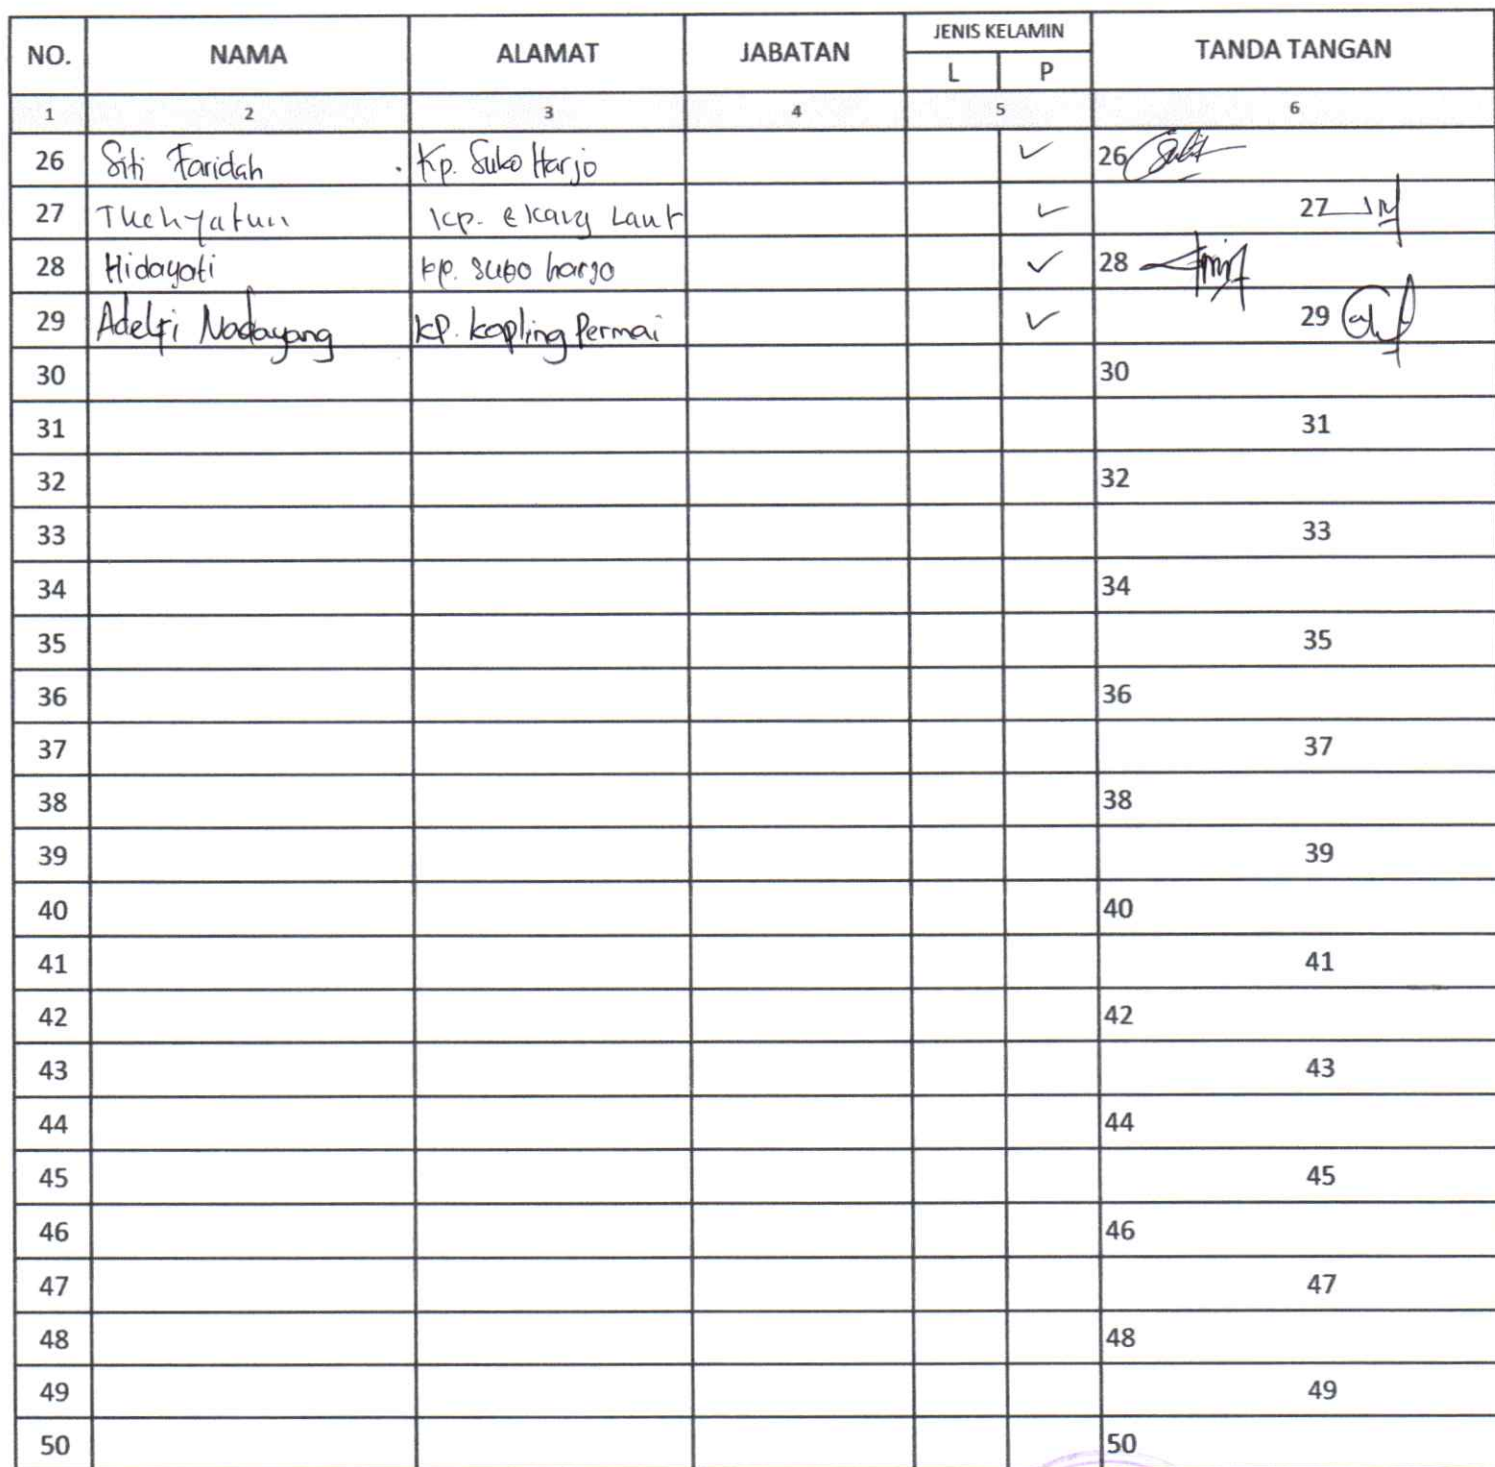 NO. NAMA ALAMAT JABATAN JENIS KELAMIN TANDA TANGAN
L P
1 2 3 4 5 6
26 Siti Faridah Kp. Suko Harjo ✓ 26
27 Kp. Laut ✓ 27
28 Hidayati kp. suko harjo ✓ 28
29 Adelfi Nadayang kP. kapling Permai ✓ 29
30 30
31 31
32 32
33 33
34 34
35 35
36 36
37 37
38 38
39 39
40 40
41 41
42 42
43 43
44 44
45 45
46 46
47 47
48 48
49 49
50 50